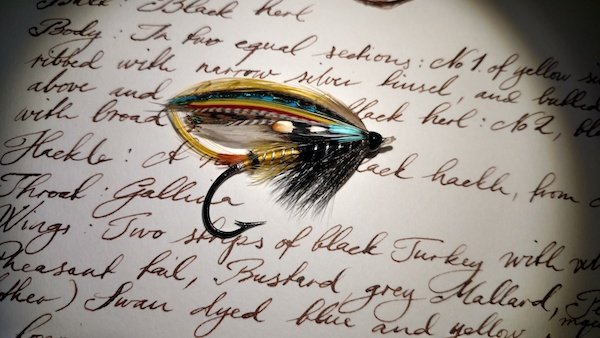 Butt : Black herl
Body : In two equal sections : No 1. of yellow
ribbed with narrow silver tinsel, and butted
above and black herl : No 2, bl
with broad
Hackle : A black hackle, from
Throat : Gallina
Wings : Two strips of black Turkey with
Pheasant tail, Bustard, grey Mallard,
Swan dyed blue and yellow